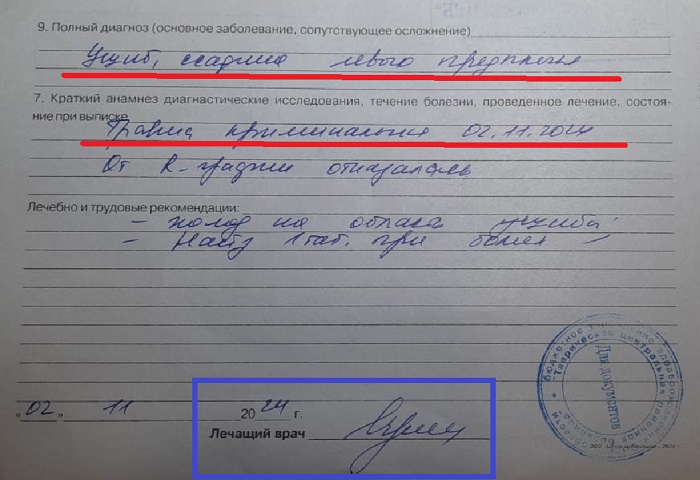 9. Полный диагноз (основное заболевание, сопутствующее осложнение)
Ушиб, ссадина левого предплечья
7. Краткий анамнез диагностические исследования, течение болезни, проведенное лечение, состоя-
ние при выписке
Травма криминальная 02.11.2024
От R-графии отказалась
Лечебно и трудовые рекомендации:
– холод на область ушиба
– Найз 1 таб. при болях
"02" 11 2024 г.
Лечащий врач
Для документов